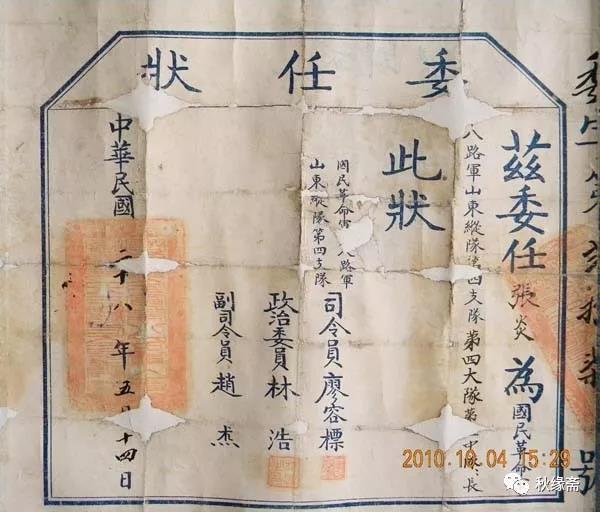 委任狀
號
茲委任張炎為國民革命
八路軍山東縱隊第四支隊第四大隊第中隊長
此狀
國民革命軍八路軍
山東縱隊第四支隊
司令員廖容標
政治委員林浩
副司令員趙杰
中華民國二十八年五月十四日
2010.10.04 15:29
秋缘斋